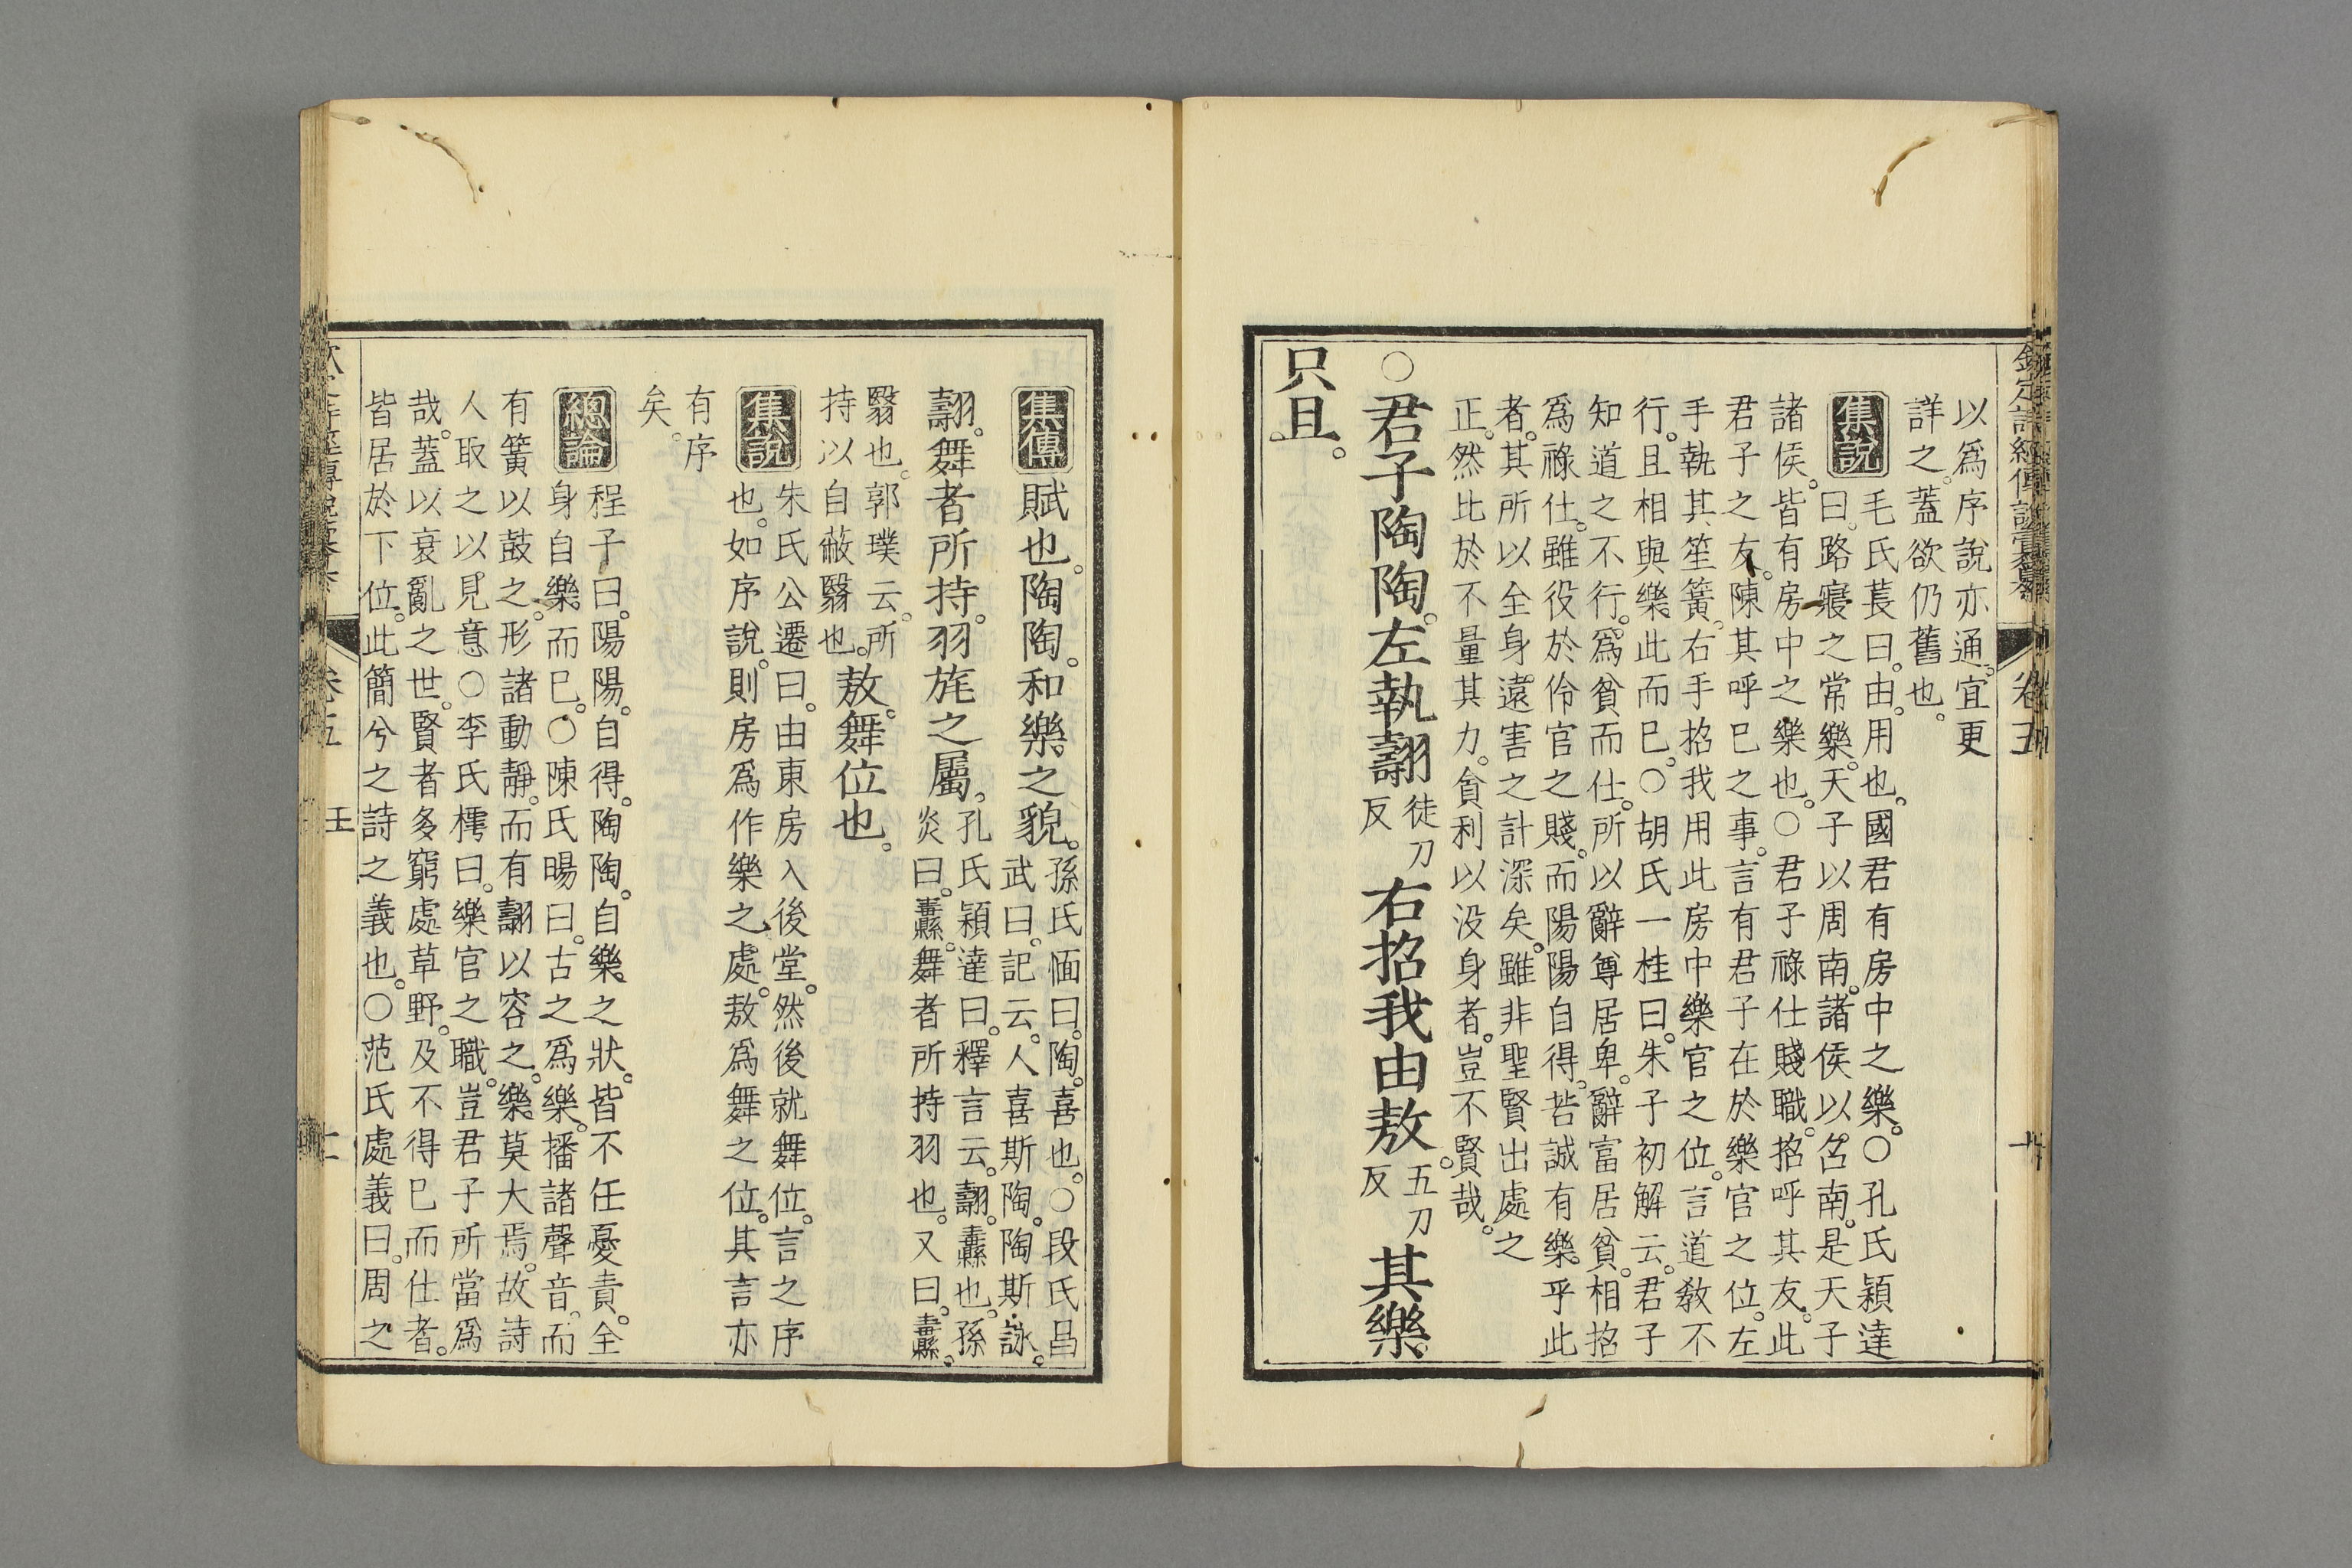 以爲序說亦通。宜更
詳之。蓋欲仍舊也。
集說
毛氏萇曰。由。用也。國君有房中之樂。○孔氏穎達
曰。路寢之常樂。天子以周南。諸侯以召南。是天子
諸侯。皆有房中之樂也。○君子祿仕賤職。招呼其友。此
君子之友。陳其呼已之事。言有君子在於樂官之位。左
手執其笙簧。右手招我用此房中樂官之位。言道敎不
行。且相與樂此而已。○胡氏一桂曰。朱子初解云。君子
知道之不行。爲貧而仕。所以辭尊居卑。辭富居貧。相招
爲祿仕。雖役於伶官之賤。而陽陽自得。若誠有樂乎此
者。其所以全身遠害之計深矣。雖非聖賢出處之
正。然比於不量其力。貪利以没身者。豈不賢哉。
○君子陶陶。左執翿徒刀反右招我由敖。五刀反其樂
只且。
欽定詩經傳說彙纂
卷五
集傳
賦也。陶陶。和樂之貌。孫氏愐曰。陶。喜也。○段氏昌
武曰。記云。人喜斯陶。陶斯詠。
翿。舞者所持。羽旄之屬。孔氏穎達曰。釋言云。翿。纛也。孫
炎曰。纛。舞者所持羽也。又曰。纛。
翳也。郭璞云。所
持以自蔽翳也。敖。舞位也。
集說
朱氏公遷曰。由東房入後堂。然後就舞位。言之序
也。如序說。則房爲作樂之處。敖爲舞之位。其言亦
有序
矣。
總論
程子曰。陽陽。自得。陶陶。自樂之狀。皆不任憂責。全
身自樂而已。○陳氏暘曰。古之爲樂。播諸聲音。而
有簧以鼓之。形諸動靜。而有翿以容之。樂莫大焉。故詩
人取之以見意○李氏樗曰。樂官之職。豈君子所當爲
哉。蓋以衰亂之世。賢者多窮處草野。及不得已而仕者。
皆居於下位。此簡兮之詩之義也。○范氏處義曰。周之
卷五
王